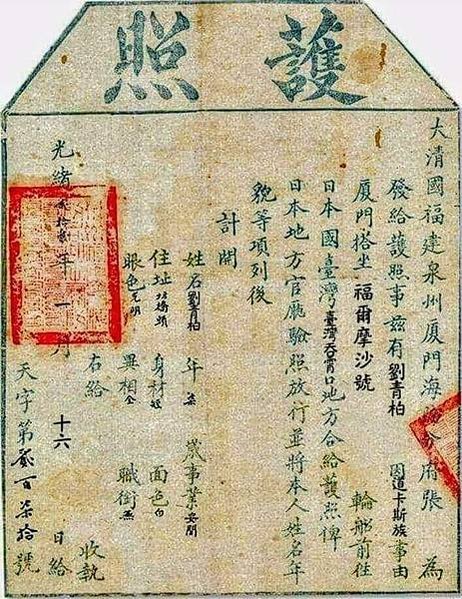 護照
大清國福建泉州厦門海防分府張 為
發給護照事茲有劉青柏 因道卡斯族事由
厦門搭坐福爾摩沙號 輪船前往
日本國臺灣臺灣吞霄口地方合給護照俾
日本地方官廳驗照放行並將本人姓名年
貌等項列後
計開
姓名劉青柏 年 歲事業安閒
住址橋頭 身材 面色白
眼色光明 異相全 職銜無
右給 收執
光緒貳拾貳年一月 十六 日給
天字第貳百柒拾號